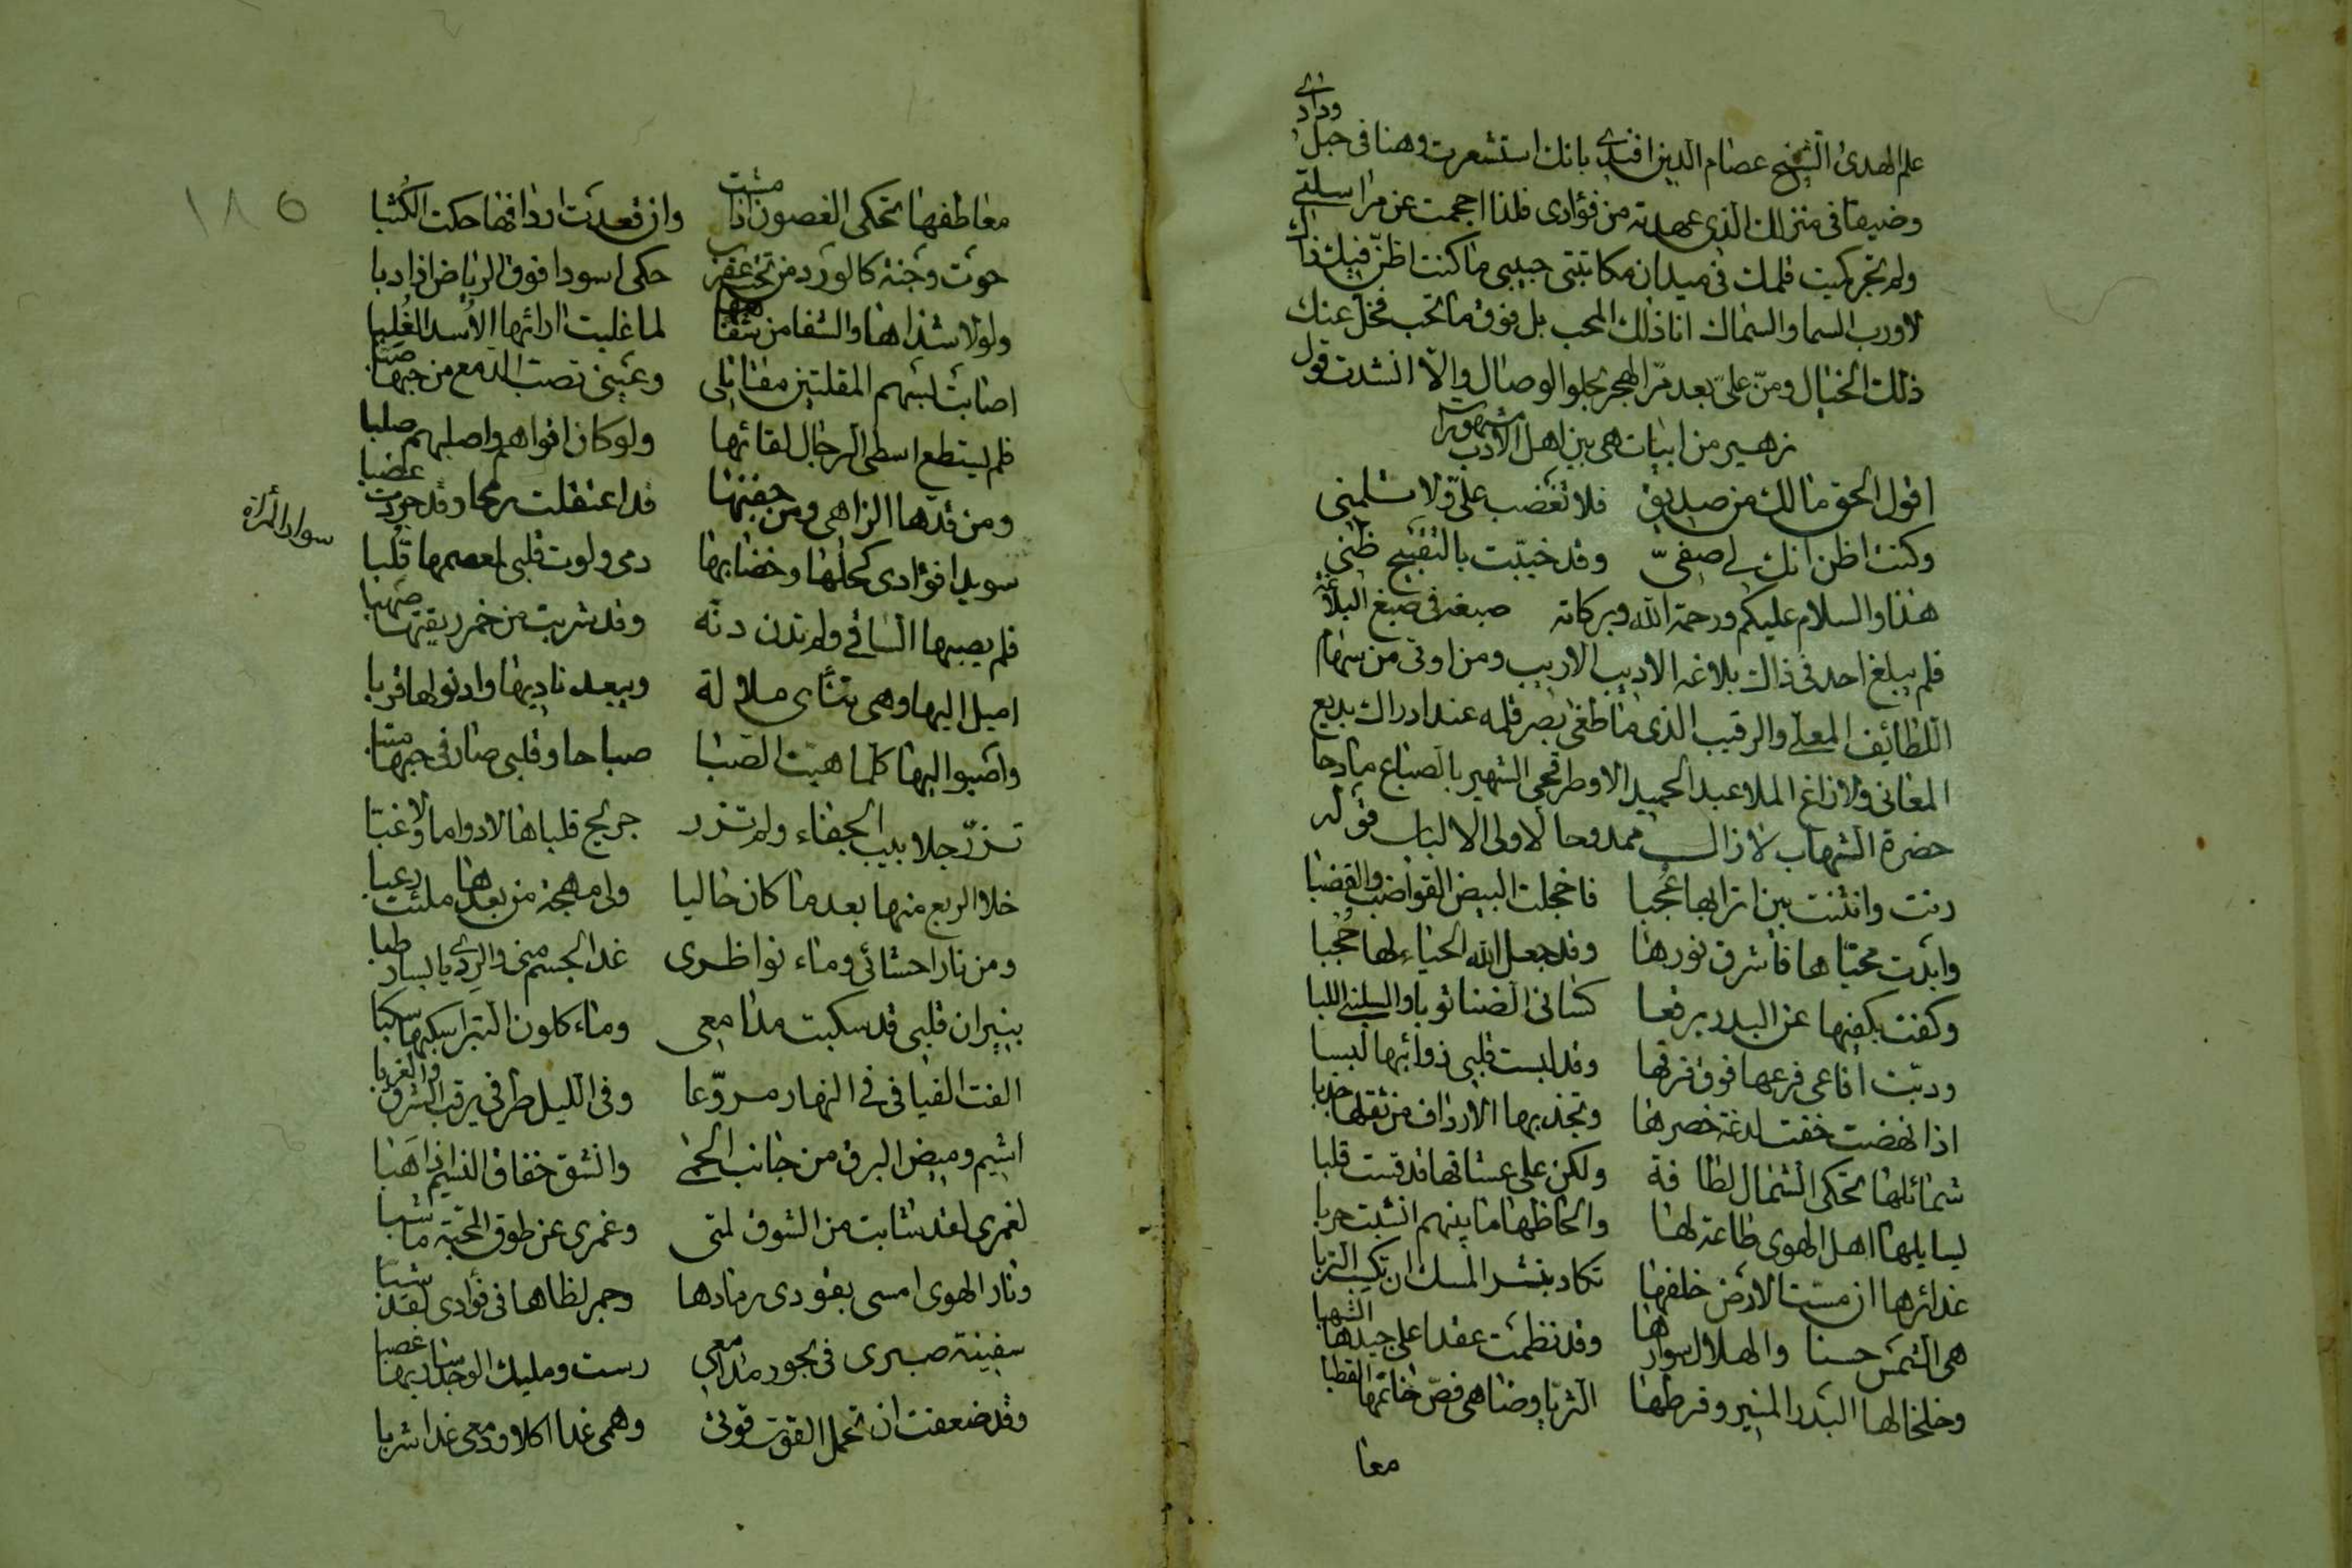 علم الهدى الشيخ عصام الدين افندى بانك استشعرت وهنا فى حبل ودادى
وضيقا فى منزلك الذى عهدته من فؤادى فلذا احجمت عن مراسلتى
ولم تجر كميت قلمك فى ميدان مكاتبتى حبيبى ما كنت اظن فيك ذاك
لا ورب السما والسماك انا ذلك المحب بل فوق ما تحب فخل عنك
ذلك الخيال ومن علىّ بعد مرّ الهجر بحلو الوصال والا انشدت قول
زهير من ابيات هى بين اهل الادب مشهورات
اقول الحق مالك من صديق فلا تغضب علىّ ولا تلمنى
وكنت اظن انك لى صفىّ وقد خيبت بالتقبيح ظنى
هذا والسلام عليكم ورحمة الله وبركاته صبغة فى صبغ البلاغة
فلم يبلغ احد فى ذاك بلاغة الاديب الاريب ومن اوتى من سهام
اللطائف المعلى والرقيب الذى ما طغى بصر قلمه عند ادراك بديع
المعانى ولا زاغ الملا عبد الحميد الاطرقجى الشهير بالصباغ مادحا
حضرة الشهاب لا زال ممدوحا لاولى الالباب قوله
رنت وانثنت بين اترابها عجبا فاخجلت البيض القواضب والقضبا
وابدت محياها فاشرق نورها وقد جعل الله الحياء لها حجبا
وكفت بكفيها عن البدر برقعا كسانى الضنا ثوبا والسلبنى اللبا
ودبت افاعى فرعها فوق فرقها وقد لبست قلبى ذوائبها لبسا
اذا نهضت خفت لدغة خصرها وتجذبها الارداف من ثقلها جذبا
شمائلها تحكى الشمال لطافة ولكن على عشاقها قد قست قلبا
يسايلها اهل الهوى طاعة لها والحاظها ما بينهم انشبت حربا
غدائرها ان مست الارض خلفها تكاد بنشر المسك ان تكسب التربا
هى الشمس حسنا والهلال سوارها وقد نظمت عقدا على جيدها الشهبا
وخلخالها البدر المنير وقرطها الثريا وضاهى فص خاتمها القطبا
معا
١٨٥
معاطفها تحكى الغصون اذا مشت وان قعدت اردافها حكت الكثبا
حوت وجنة كالورد من تحت عقرب حكى اسودا فوق الرياض اذا دبا
ولولا شذاها والشفا من شفاهها لما غلبت ارائها الأسد الغلبا
اصابت بسهم المقلتين مقاتلى وعينى تصب الدمع من حبها صبا
فلم يستطع اسطى الرجال لقائها ولو كان اقواهم واصلبهم صلبا
ومن قدها الزاهى ومن جفنها قد اعتقلت رمحا وقد جردت عضبا
سويدا فؤادى كحلها وخضابها دمى ولوت قلبى لمعصمها قلبا
سوار المرأة
فلم يصبها الساقى ولم تدن دنه وقد شربت من خمر ريقتها صهبا
اميل اليها وهى تنأى ملالة ويبعد ناديها وادنو لها قربا
واصبوا اليها كلما هبت الصبا صباحا وقلبى صار فى حبها صبا
تزرّ جلابيب الجفاء ولم تزر جريح قلباها لا دواما ولا غبّا
خلا الربع منها بعد ما كان خاليا ولى مهجة من بعدها ملئت رعبا
ومن نار احشائى وماء نواظرى غدا الجسم منى
بنيران قلبى قد سكبت مدامعى وماء كلون التبر اسكبها سكبا
الفت الفيافى فى النهار مروّعا وفى الليل طرفى يرقب الشرق والغربا
اشيم وميض البرق من جانب الحمى وانشق خفاق النسيم اذا هبا
لعمرى لقد شابت من الشوق لمتى وعمرى عن طوق المحبة ما شبا
ونار الهوى امسى بفودى رمادها وجمر لظاها فى فؤادى لقد شبا
سفينة صبرى فى بحور مدامعى رست ومليك الوجد سار بها غصبا
وقد ضعفت ان تحمل القوت قوتى وهمى غدا اكلا ودمعى غدا شربا